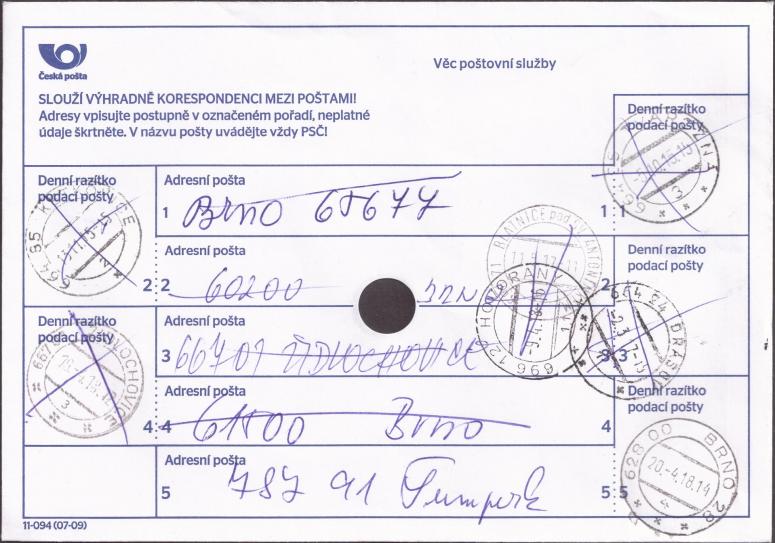 Česká pošta
Věc poštovní služby
SLOUŽÍ VÝHRADNĚ KORESPONDENCI MEZI POŠTAMI!
Adresy vpisujte postupně v označeném pořadí, neplatné
údaje škrtněte. V názvu pošty uvádějte vždy PSČ!
Denní razítko
podací pošty
1
Denní razítko
podací pošty
2
Adresní pošta
1 Brno 65677 1
Adresní pošta
2 60200 2
Denní razítko
podací pošty
3
Denní razítko
podací pošty
4
Adresní pošta
3 66701 ŽIDLOCHOVICE 3
Adresní pošta
4 61800 Brno 4
Denní razítko
podací pošty
5
Adresní pošta
5 787 91 Šumperk 5
628 00 BRNO 28
20.-4.18.14
4
11-094 (07-09)